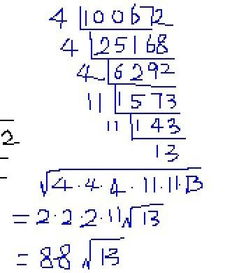 4 |100672
4 |25168
4 |6292
11 |1573
11 |143
13
2
√4·4·4·11·11·13
= 2·2·2·11√13
= 88√13